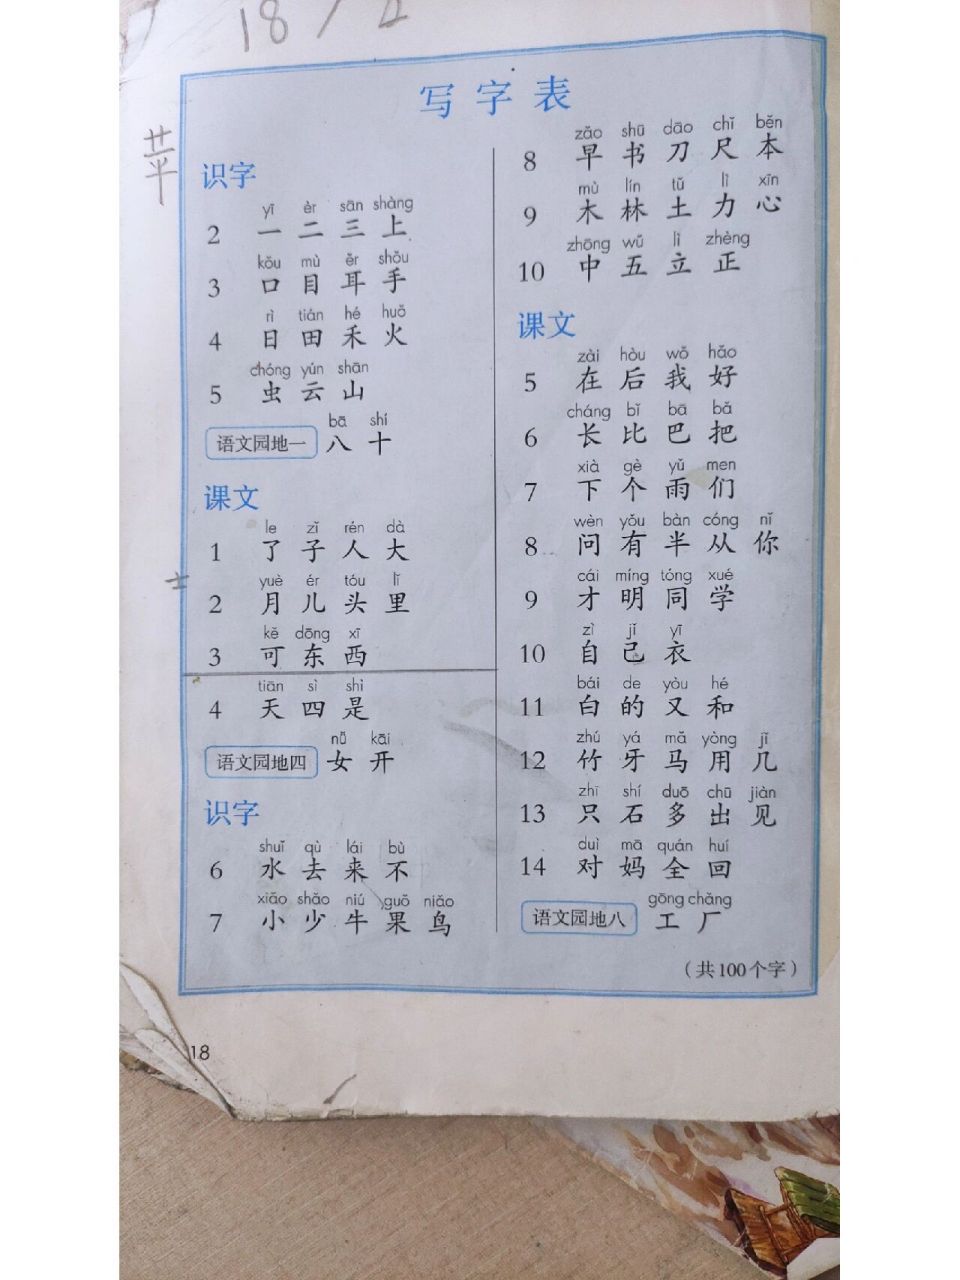 18
苹
写字表
识字
yī èr sān shàng
2 一 二 三 上
kǒu mù ěr shǒu
3 口 目 耳 手
rì tián hé huǒ
4 日 田 禾 火
chóng yún shān
5 虫 云 山
bā shí
语文园地一 八 十
课文
le zǐ rén dà
1 了 子 人 大
yuè ér tóu lǐ
2 月 儿 头 里
kě dōng xī
3 可 东 西
tiān sì shì
4 天 四 是
nǚ kāi
语文园地四 女 开
识字
shuǐ qù lái bù
6 水 去 来 不
xiǎo shǎo niú guǒ niǎo
7 小 少 牛 果 鸟
zǎo shū dāo chǐ běn
8 早 书 刀 尺 本
mù lín tǔ lì xīn
9 木 林 土 力 心
zhōng wǔ lì zhèng
10 中 五 立 正
课文
zài hòu wǒ hǎo
5 在 后 我 好
cháng bǐ bā bǎ
6 长 比 巴 把
xià gè yǔ men
7 下 个 雨 们
wèn yǒu bàn cóng nǐ
8 问 有 半 从 你
cái míng tóng xué
9 才 明 同 学
zì jǐ yī
10 自 己 衣
bái de yòu hé
11 白 的 又 和
zhú yá mǎ yòng jǐ
12 竹 牙 马 用 几
zhǐ shí duō chū jiàn
13 只 石 多 出 见
duì mā quán huí
14 对 妈 全 回
gōng chǎng
语文园地八 工 厂
（共100个字）
18